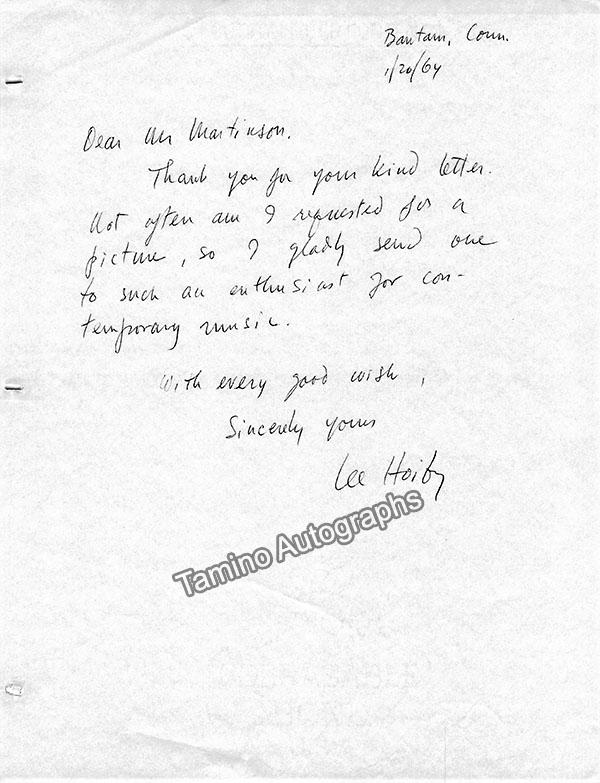 Bantam, Conn.
1/20/64
Dear Mr Martinson.
Thank you for your kind letter.
Not often am I requested for a
picture, so I gladly send one
to such an enthusiast for con-
temporary music.
With every good wish,
Sincerely yours
Lee Hoiby
Tamino Autographs